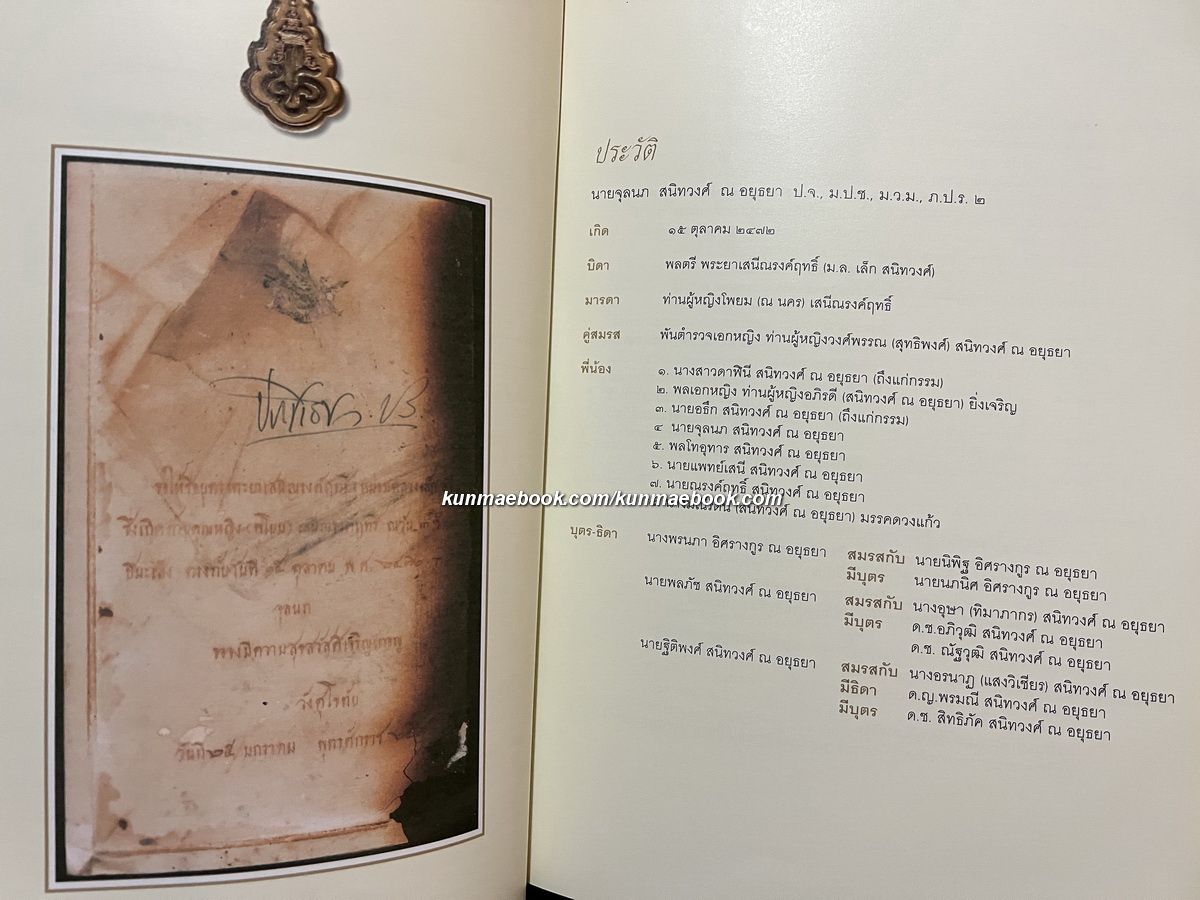 ปชาธิปก. ป.ร.
ขอให้
ซึ่งเกิด
ปีมะเส็ง ตรงกับวันที่ ๑๕ ตุลาคม พ.ศ. ๒๔๗๒
จุลนภ
จงมีความสุขสวัสดิ์เจริญเทอญ
วังศุโขทัย
วันที่ ๒๕ มกราคม พุทธศักราช
ประวัติ
นายจุลนภ สนิทวงศ์ ณ อยุธยา ป.จ., ม.ป.ช., ม.ว.ม., ภ.ป.ร. ๒
เกิด ๑๕ ตุลาคม ๒๔๗๒
บิดา พลตรี พระยาเสนีณรงค์ฤทธิ์ (ม.ล. เล็ก สนิทวงศ์)
มารดา ท่านผู้หญิงโพยม (ณ นคร) เสนีณรงค์ฤทธิ์
คู่สมรส พันตำรวจเอกหญิง ท่านผู้หญิงวงศ์พรรณ (สุทธิพงศ์) สนิทวงศ์ ณ อยุธยา
พี่น้อง ๑. นางสาวดาฬินี สนิทวงศ์ ณ อยุธยา (ถึงแก่กรรม)
๒. พลเอกหญิง ท่านผู้หญิงอภิรดี (สนิทวงศ์ ณ อยุธยา) ยิ่งเจริญ
๓. นายอธึก สนิทวงศ์ ณ อยุธยา (ถึงแก่กรรม)
๔ นายจุลนภ สนิทวงศ์ ณ อยุธยา
๕. พลโทอุทาร สนิทวงศ์ ณ อยุธยา
๖. นายแพทย์เสนี สนิทวงศ์ ณ อยุธยา
๗. นายณรงค์ฤทธิ์ สนิทวงศ์ ณ อยุธยา
kunmaebook.com/kunmaebook.com
(สนิทวงศ์ ณ อยุธยา) มรรคดวงแก้ว
บุตร-ธิดา นางพรนภา อิศรางกูร ณ อยุธยา สมรสกับ นายนิพิฐ อิศรางกูร ณ อยุธยา
มีบุตร นายนภนิศ อิศรางกูร ณ อยุธยา
นายพลภัช สนิทวงศ์ ณ อยุธยา สมรสกับ นางอุษา (ทิมาภากร) สนิทวงศ์ ณ อยุธยา
มีบุตร ด.ช.อภิวุฒิ สนิทวงศ์ ณ อยุธยา
ด.ช. ณัฐวุฒิ สนิทวงศ์ ณ อยุธยา
นายฐิติพงศ์ สนิทวงศ์ ณ อยุธยา สมรสกับ นางอรนาฏ (แสงวิเชียร) สนิทวงศ์ ณ อยุธยา
มีธิดา ด.ญ.พรมณี สนิทวงศ์ ณ อยุธยา
มีบุตร ด.ช. สิทธิภัค สนิทวงศ์ ณ อยุธยา